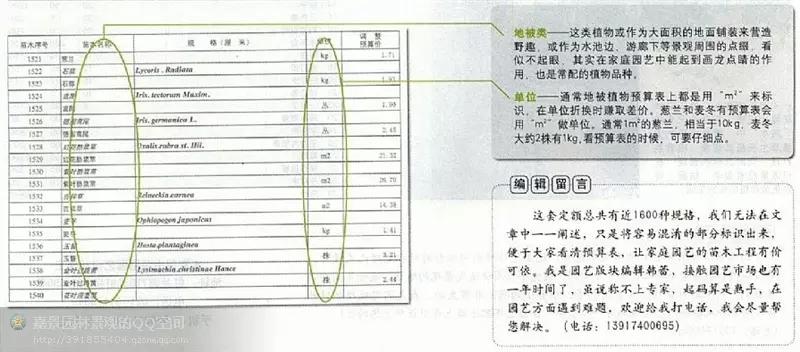 苗木序号 苗木名称 规 格（厘 米） 单位 调 整
预算价
1521 葱兰 kg 1.71
1522 石蒜 Lycoris. Radiata
1523 石蒜 kg
1524 Iris. tectorum Maxim.
1525 丛 1.95
1526 德国鸢尾 Iris. germanica L.
1527 德国鸢尾 丛 2.45
1528 红花酢浆草 Oxalis rubra st. Hil.
1529 红花酢浆草 m2 21.32
1530 紫叶酢浆草
1531 紫叶酢浆草 m2
1532 吉祥草 Reineckia carnea
1533 吉祥草 m2 14.38
1534 麦冬 Ophiopogon japonicus
1535 麦冬 kg 1.41
1536 玉簪 Hosta plantaginea
1537 玉簪 株 3.21
1538 金叶过路黄 Lysimachia christinae Hance
1539 金叶过路黄 株 2.44
1540
地被类——这类植物或作为大面积的地面铺装来营造
野趣，或作为水池边、游廊下等景观周围的点缀，看
似不起眼，其实在家庭园艺中能起到画龙点睛的作
用，也是常配的植物品种。
单位——通常地被植物预算表上都是用“m²”来标
识，在单位折换时赚取差价。葱兰和麦冬有预算表会
用“m²”做单位。通常1m²的葱兰，相当于10kg，麦冬
大约2株有1kg，看预算表的时候，可要仔细点。
编辑留言
这套定额总共有近1600种规格，我们无法在文
章中一一阐述，只是将容易混淆的部分标识出来，
便于大家看清预算表，让家庭园艺的苗木工程有价
可依。我是园艺版块编辑韩蕾，接触园艺市场也有
一年时间了，虽说称不上专家，起码算是熟手，在
园艺方面遇到难题，欢迎给我打电话，我会尽量帮
您解决。（电话：13917400695）
嘉景园林景观的QQ空间
http://391855404.qzone.qq.com